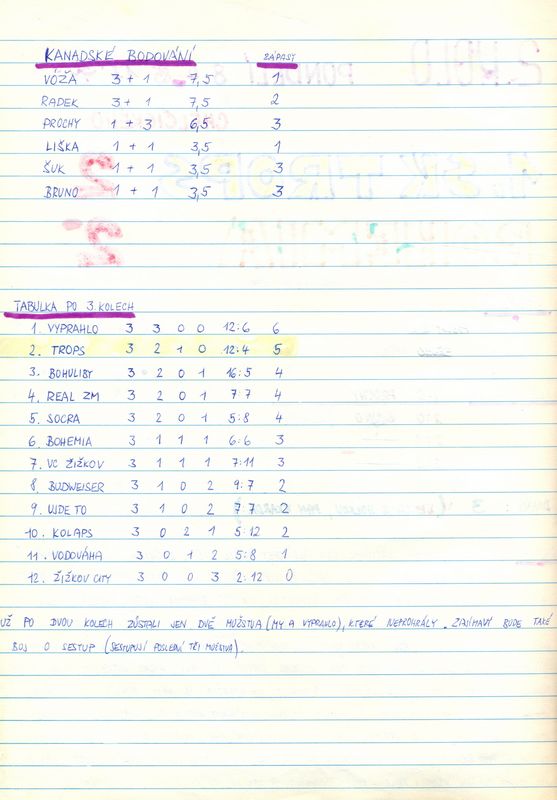 KANADSKÉ BODOVÁNÍ ZÁPASY
VÓŽA 3 + 1 7,5 1
RADEK 3 + 1 7,5 2
PROCHY 1 + 3 6,5 3
LIŠKA 1 + 1 3,5 1
ŠUK 1 + 1 3,5 3
BRUNO 1 + 1 3,5 3
TABULKA PO 3. KOLECH
1. VYPRAHLO 3 3 0 0 12:6 6
2. TROPS 3 2 1 0 12:4 5
3. BOHULIBY 3 2 0 1 16:5 4
4. REAL ZM 3 2 0 1 7:7 4
5. SOCRA 3 2 0 1 5:8 4
6. BOHEMIA 3 1 1 1 6:6 3
7. VC ŽIŽKOV 3 1 1 1 7:11 3
8. BUDWEISER 3 1 0 2 9:7 2
9. UJDE TO 3 1 0 2 7:7 2
10. KOLAPS 3 0 2 1 5:12 2
11. VODOVÁHA 3 0 1 2 5:8 1
12. ŽIŽKOV CITY 3 0 0 3 2:12 0
UŽ PO DVOU KOLECH ZŮSTALI JEN DVĚ MUŽSTVA (MY A VYPRAHLO), KTERÉ NEPROHRÁLY. ZAJÍMAVÝ BUDE TAKÉ
BOJ O SESTUP (SESTUPUJÍ POSLEDNÍ TŘI MUŽSTVA).